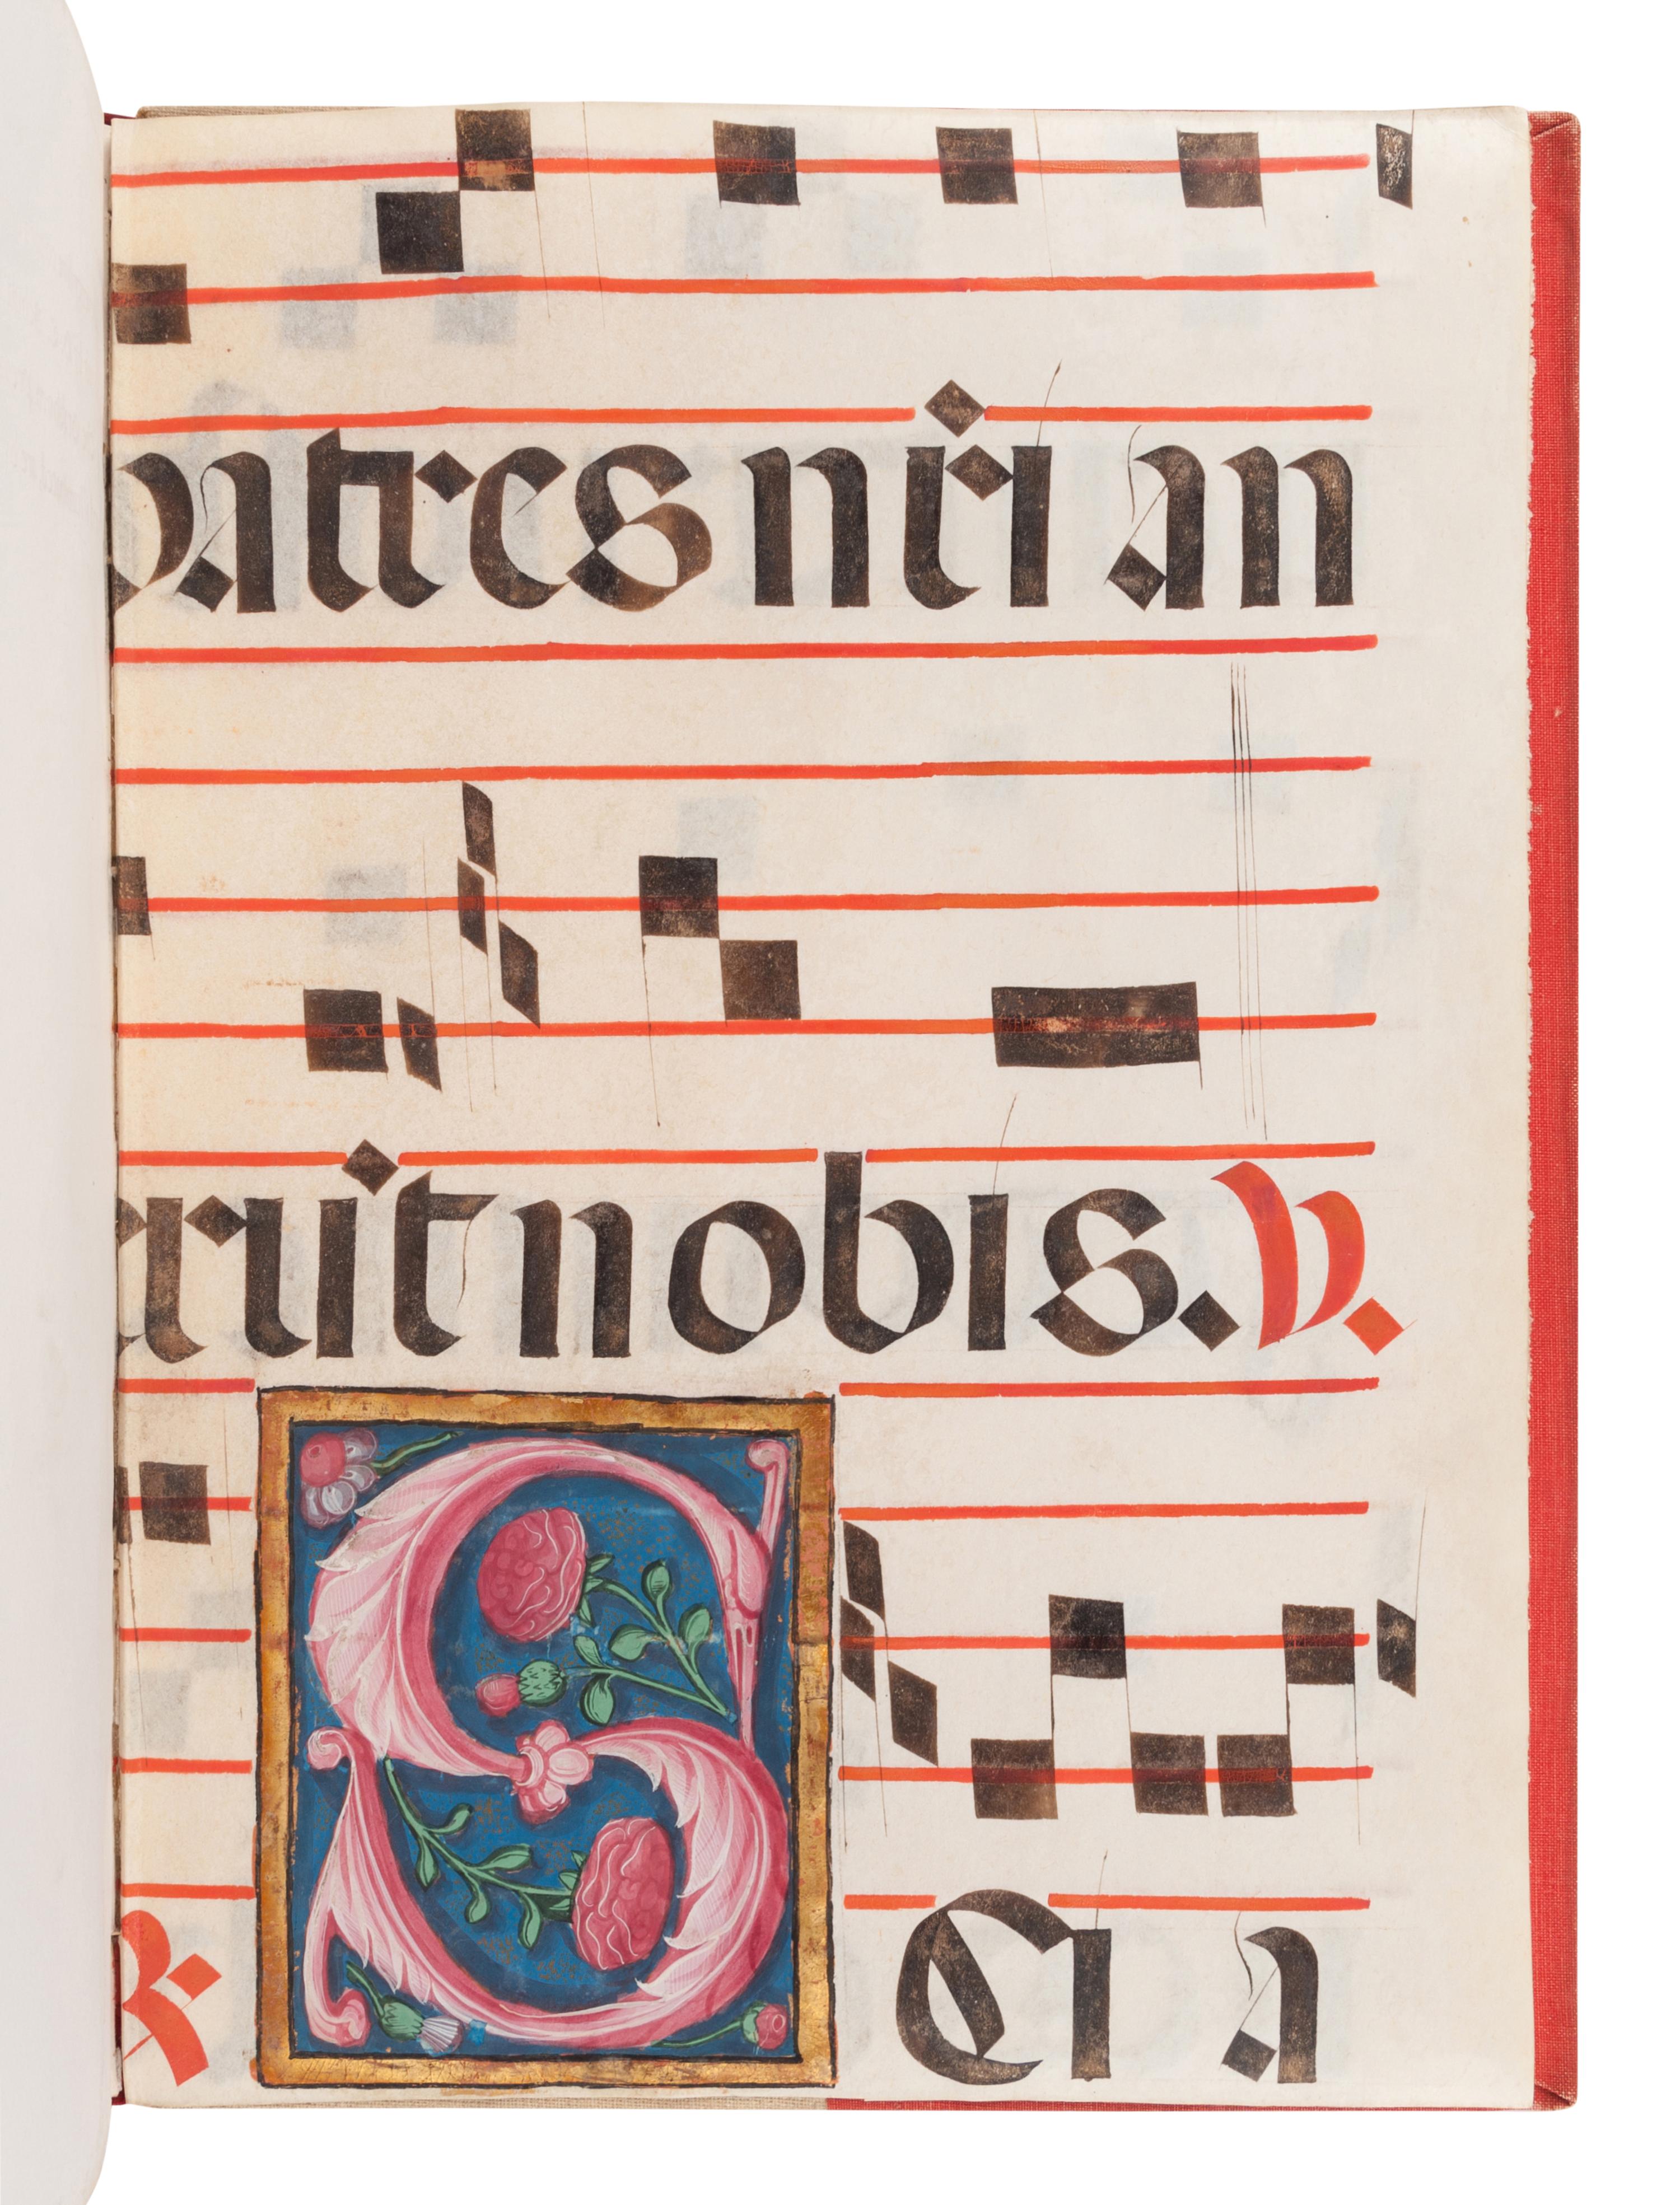 patres nr̄i an
erūt nobis. V.
R. SCi a